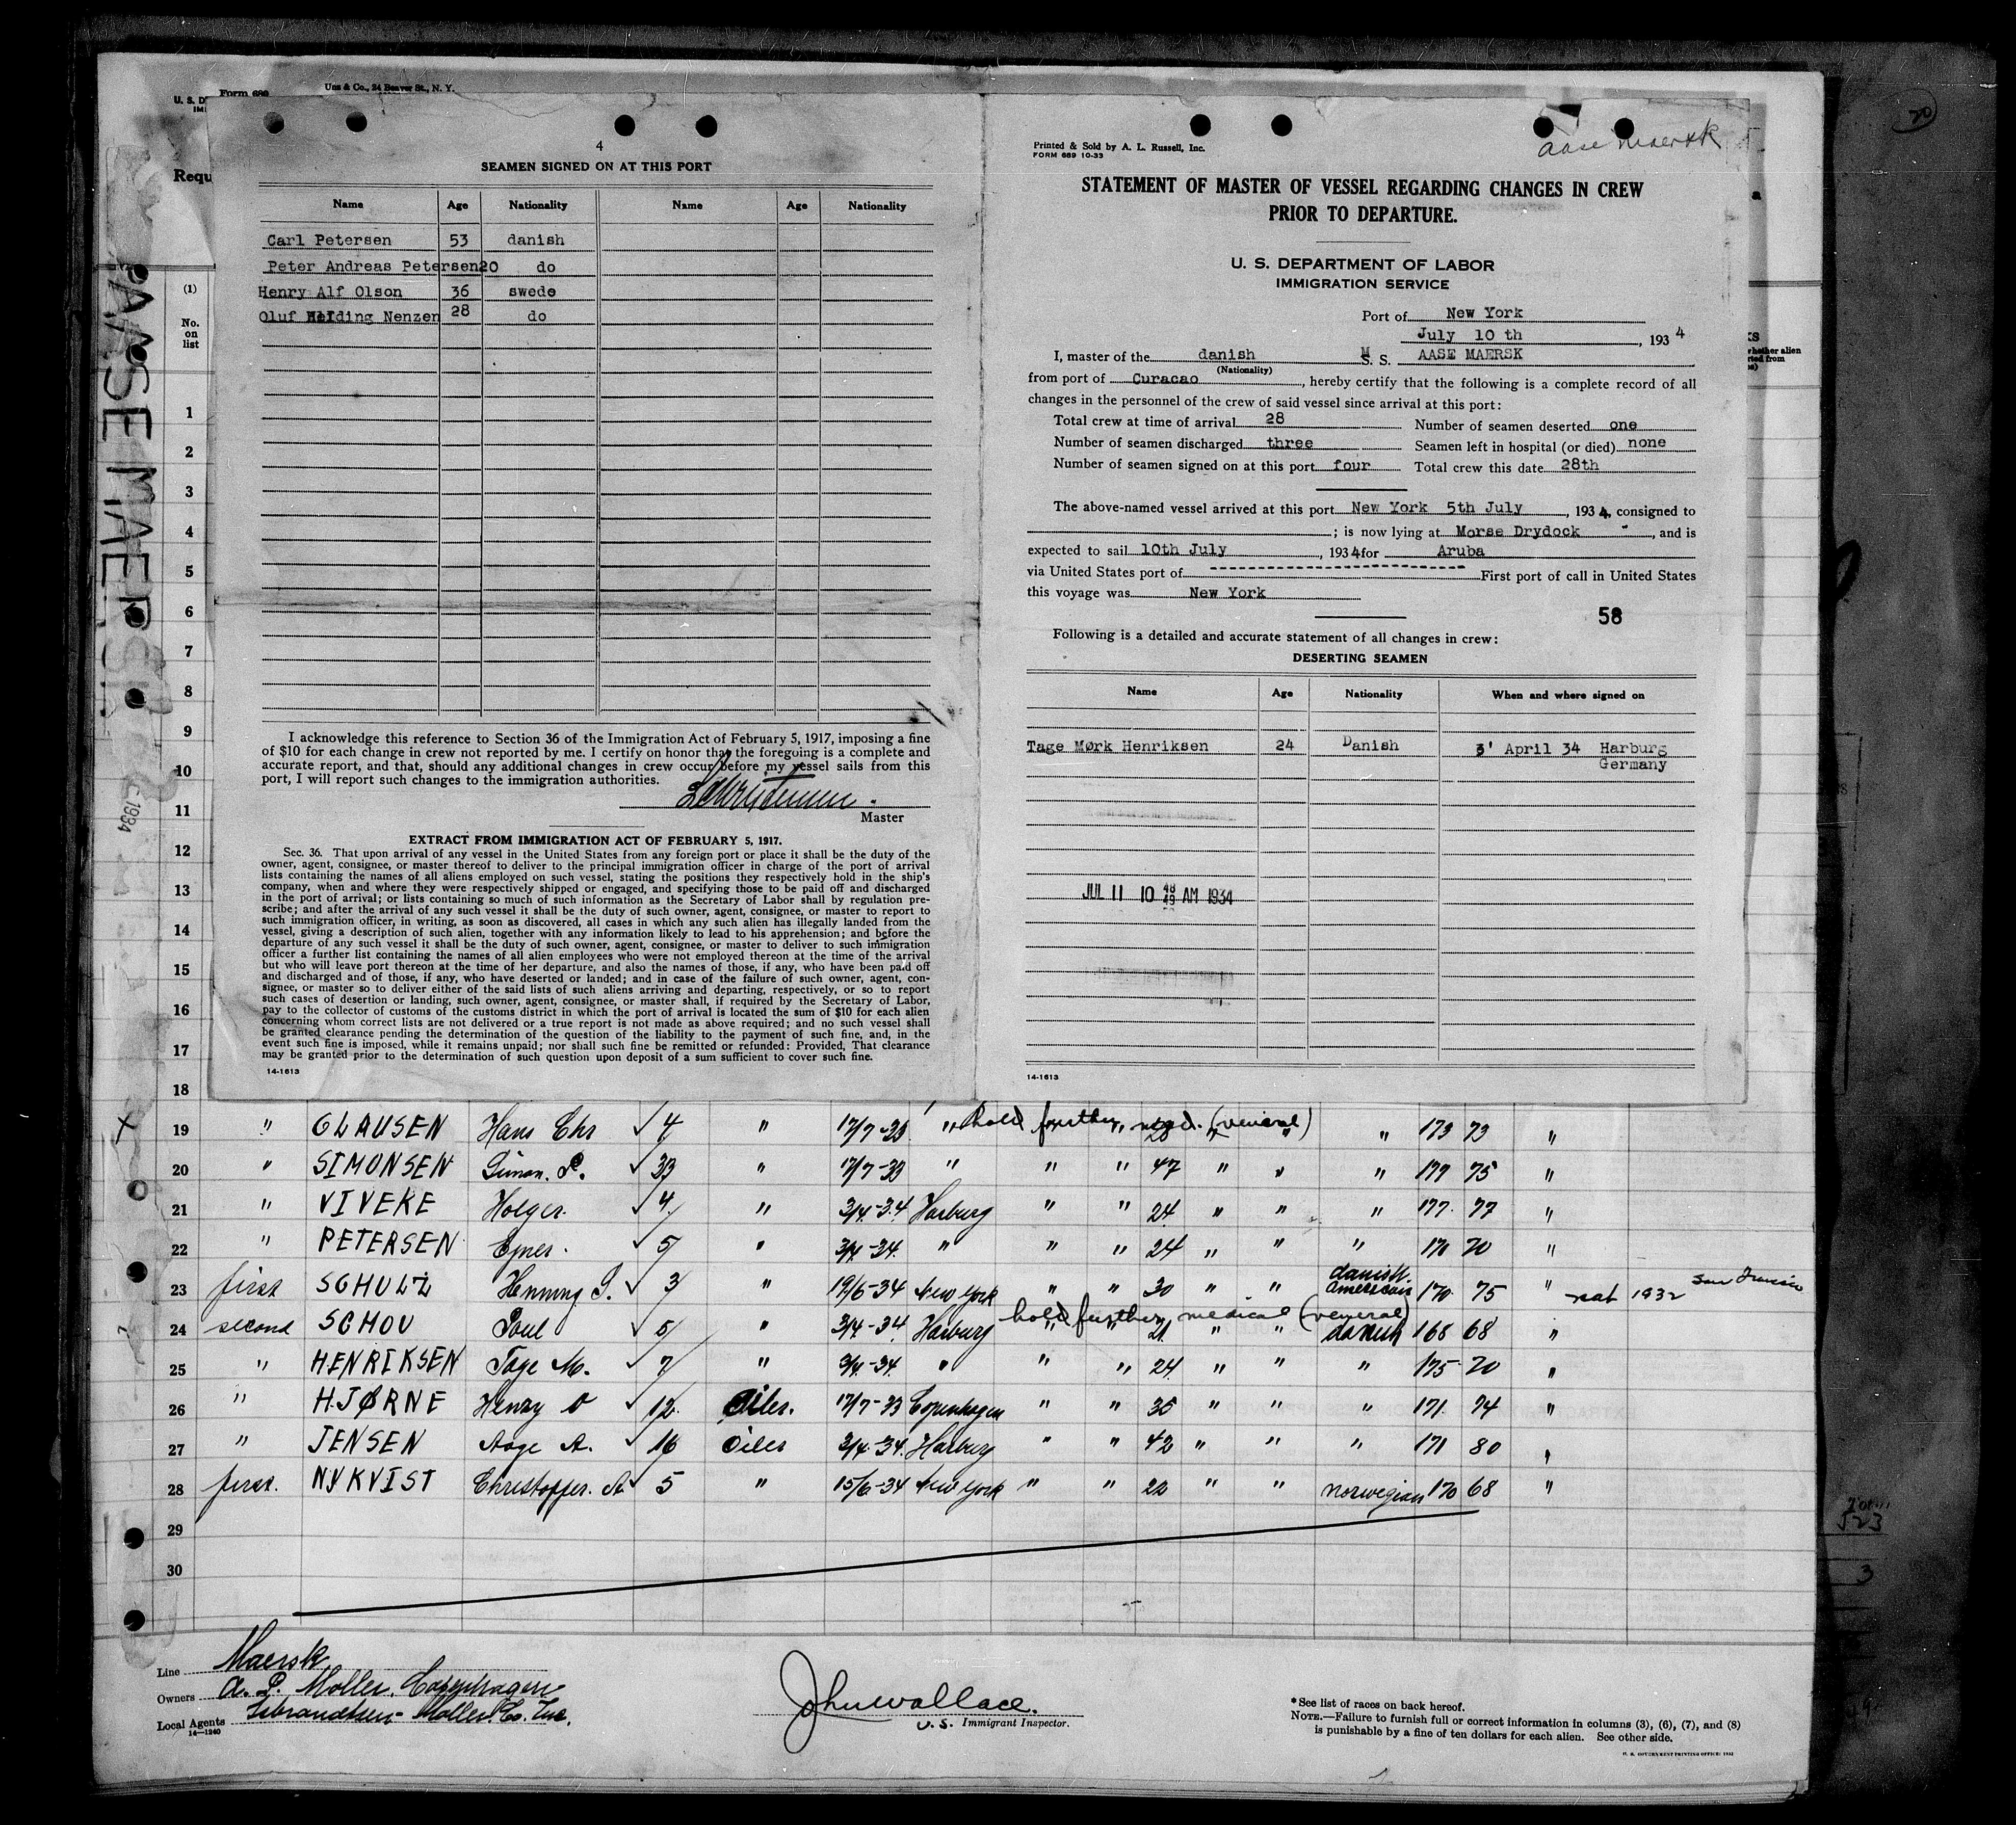 Form 689
Uns & Co., 24 Beaver St., N. Y.
U. S. D
IMI
Requ
(1)
No.
on
list
AASE MAERSK
1934
4
SEAMEN SIGNED ON AT THIS PORT
Name Age Nationality Name Age Nationality
Carl Petersen 53 danish
Peter Andreas Petersen 20 do
Henry Alf Olson 36 swede
Oluf Nenzen 28 do
I acknowledge this reference to Section 36 of the Immigration Act of February 5, 1917, imposing a fine
of $10 for each change in crew not reported by me. I certify on honor that the foregoing is a complete and
accurate report, and that, should any additional changes in crew occur before my vessel sails from this
port, I will report such changes to the immigration authorities.
Master
EXTRACT FROM IMMIGRATION ACT OF FEBRUARY 5, 1917.
Sec. 36. That upon arrival of any vessel in the United States from any foreign port or place it shall be the duty of the
owner, agent, consignee, or master thereof to deliver to the principal immigration officer in charge of the port of arrival
lists containing the names of all aliens employed on such vessel, stating the positions they respectively hold in the ship's
company, when and where they were respectively shipped or engaged, and specifying those to be paid off and discharged
in the port of arrival; or lists containing so much of such information as the Secretary of Labor shall by regulation pre-
scribe; and after the arrival of any such vessel it shall be the duty of such owner, agent, consignee, or master to report to
such immigration officer, in writing, as soon as discovered, all cases in which any such alien has illegally landed from the
vessel, giving a description of such alien, together with any information likely to lead to his apprehension; and before the
departure of any such vessel it shall be the duty of such owner, agent, consignee, or master to deliver to such immigration
officer a further list containing the names of all alien employees who were not employed thereon at the time of the arrival
but who will leave port thereon at the time of her departure, and also the names of those, if any, who have been paid off
and discharged and of those, if any, who have deserted or landed; and in case of the failure of such owner, agent, con-
signee, or master so to deliver either of the said lists of such aliens arriving and departing, respectively, or so to report
such cases of desertion or landing, such owner, agent, consignee, or master shall, if required by the Secretary of Labor,
pay to the collector of customs of the customs district in which the port of arrival is located the sum of $10 for each alien
concerning whom correct lists are not delivered or a true report is not made as above required; and no such vessel shall
be granted clearance pending the determination of the question of the liability to the payment of such fine, and, in the
event such fine is imposed, while it remains unpaid; nor shall such fine be remitted or refunded: Provided, That clearance
may be granted prior to the determination of such question upon deposit of a sum sufficient to cover such fine.
14-1613
Printed & Sold by A. L. Russell, Inc.
FORM 689 10-33
Aase Maersk
STATEMENT OF MASTER OF VESSEL REGARDING CHANGES IN CREW
PRIOR TO DEPARTURE.
U. S. DEPARTMENT OF LABOR
IMMIGRATION SERVICE
Port of New York
July 10 th, 1934
I, master of the danish M S. S. AASE MAERSK
(Nationality)
from port of Curacao, hereby certify that the following is a complete record of all
changes in the personnel of the crew of said vessel since arrival at this port:
Total crew at time of arrival 28 Number of seamen deserted one
Number of seamen discharged three Seamen left in hospital (or died) none
Number of seamen signed on at this port four Total crew this date 28th
The above-named vessel arrived at this port New York 5th July, 1934, consigned to
; is now lying at Morse Drydock, and is
expected to sail 10th July, 1934 for Aruba
via United States port of First port of call in United States
this voyage was New York
58
Following is a detailed and accurate statement of all changes in crew:
DESERTING SEAMEN
Name Age Nationality When and where signed on
Tage Mørk Henriksen 24 Danish 3' April 34 Harburg
Germany
JUL 11 10 48 49 AM 1934
14-1613
1
2
3
4
5
6
7
8
9
10
11
12
13
14
15
16
17
18
hold further med. (veneral)
19 " CLAUSEN Hans Chr ✓ 4 " 17/7-33 " " " 28 " " " 173 73 "
20 " SIMONSEN Simon. P. ✓ 33 " 17/7-33 " " " 47 " " " 177 75 "
21 " VIVEKE Holger. ✓ 4 " 3/4-34 Harburg " " 24 " " " 177 77 "
22 " PETERSEN Ejner. ✓ 5 " 3/4-34 " " " 24 " " " 170 70 "
23 first SCHULZ Henning S. ✓ 3 " 19/6-34 New York " " 30 " " danish. american 170 75 " nat 1932 San Francisco
hold further medical (veneral)
24 second SCHOU Poul ✓ 5 " 3/4-34 Harburg " " 21 " " danish 168 68 "
25 " HENRIKSEN Tage M. ✓ 7 " 3/4-34 " " " 24 " " " 175 70 "
26 " HJØRNE Henry O ✓ 12 Oiler. 17/7-33 Copenhagen " " 35 " " " 171 74 "
27 " JENSEN Aage A. ✓ 16 Oiler 3/4-34 Harburg " " 42 " " " 171 80 "
28 first. NYKVIST Christoffer. A ✓ 5 " 15/6-34 New York " " 22 " " norwegian 170 68 "
29
30
Line Maersk
Owners A. P. Moller. Copenhagen
Local Agents Isbrandtsen-Moller. Co. Inc.
14-1240
John Wallace.
U. S. Immigrant Inspector.
*See list of races on back hereof.
NOTE.—Failure to furnish full or correct information in columns (3), (6), (7), and (8)
is punishable by a fine of ten dollars for each alien. See other side.
U. S. GOVERNMENT PRINTING OFFICE: 1932